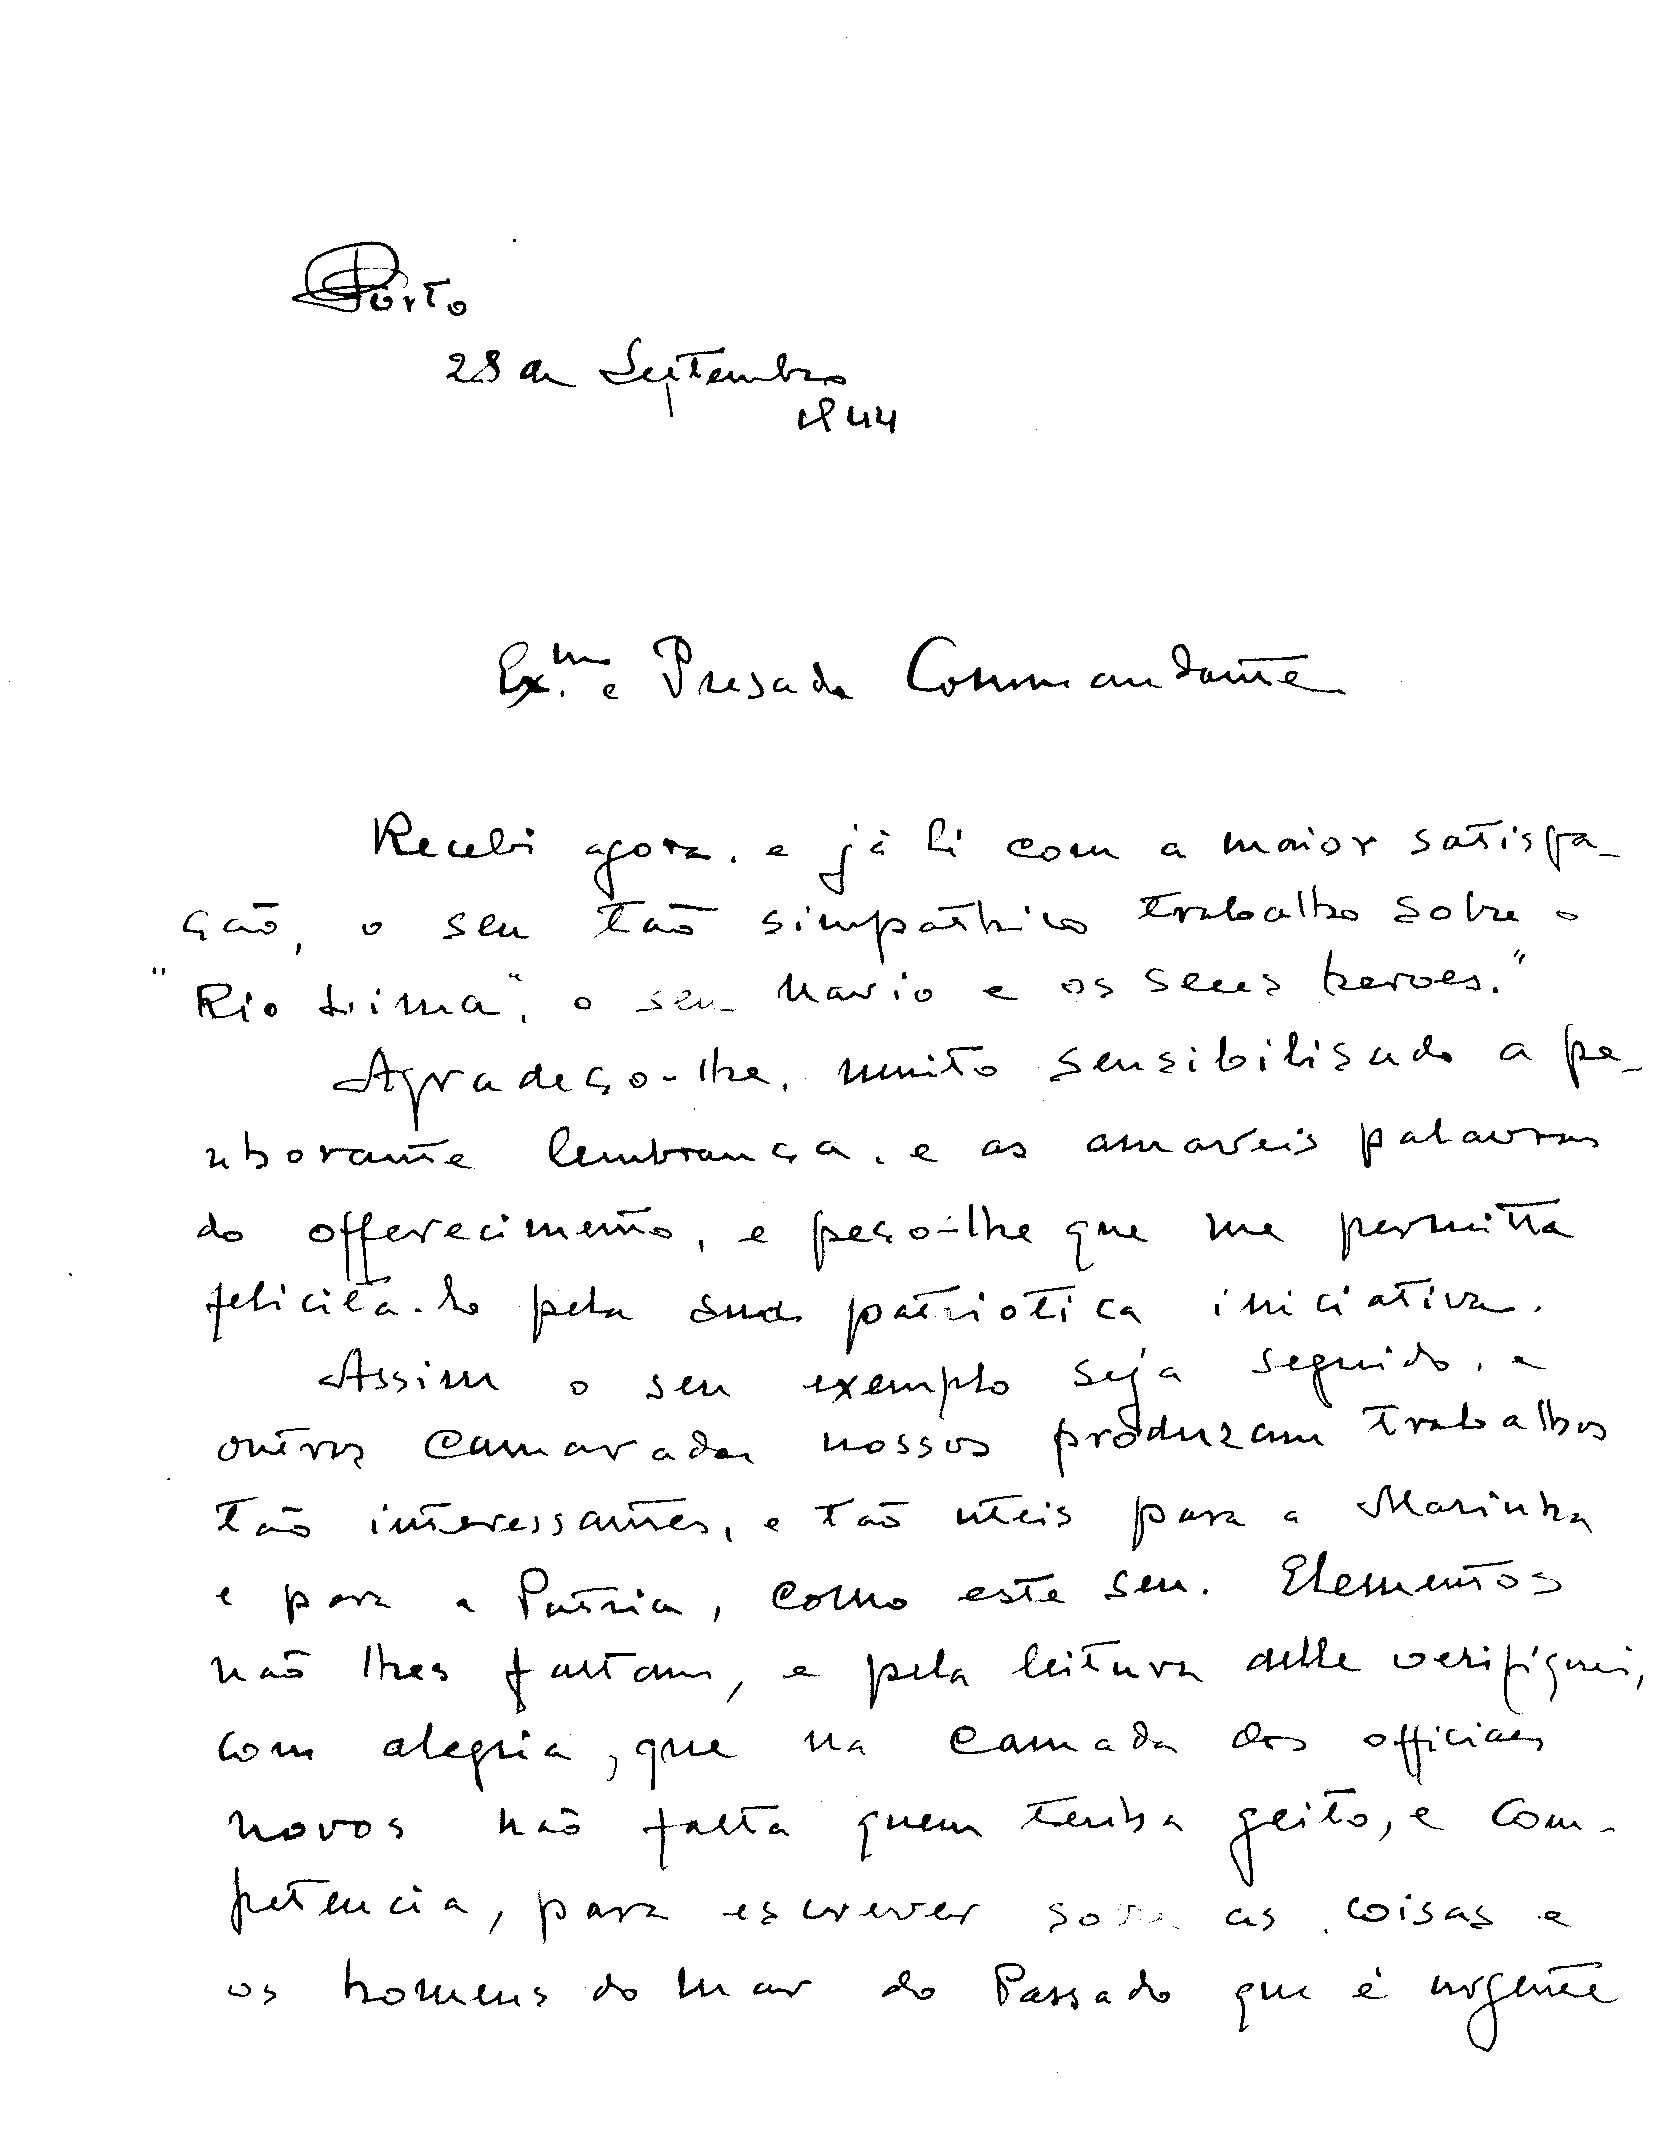 Porto
28 de Septembro
1944
Ex.mo e Presado Commandante
Recebi agora, e já li com a maior satisfa-
ção, o seu tão simpathico trabalho sobre o
"Rio Lima", "o seu navio e os seus heroes."
Agradeço-lhe, muito sensibilisado a pe-
nhorante lembrança, e as amaveis palavras
do offerecimento, e peço-lhe que me permitta
felicitá-lo pela sua patriotica iniciativa.
Assim o seu exemplo seja seguido, e
outros camaradas nossos produzam trabalhos
tão interessantes, e tão uteis para a Marinha
e para a Patria, como este seu. Elementos
não lhes faltam, e pela leitura delle verifiquei,
com alegria, que na camada dos officiaes
novos não falta quem tenha geito, e com-
petencia, para escrever sobre as coisas e
os homens do mar do Passado que é urgente